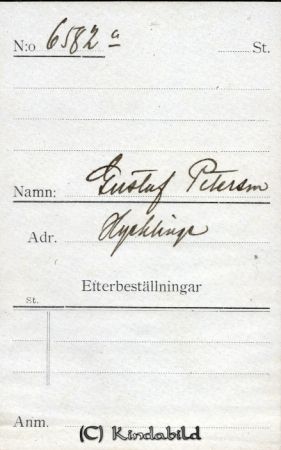 N:o 6582 a St.
Namn: Gustaf Peterson
Adr. Hycklinge
Efterbeställningar
St.
Anm.
(C) Kindabild